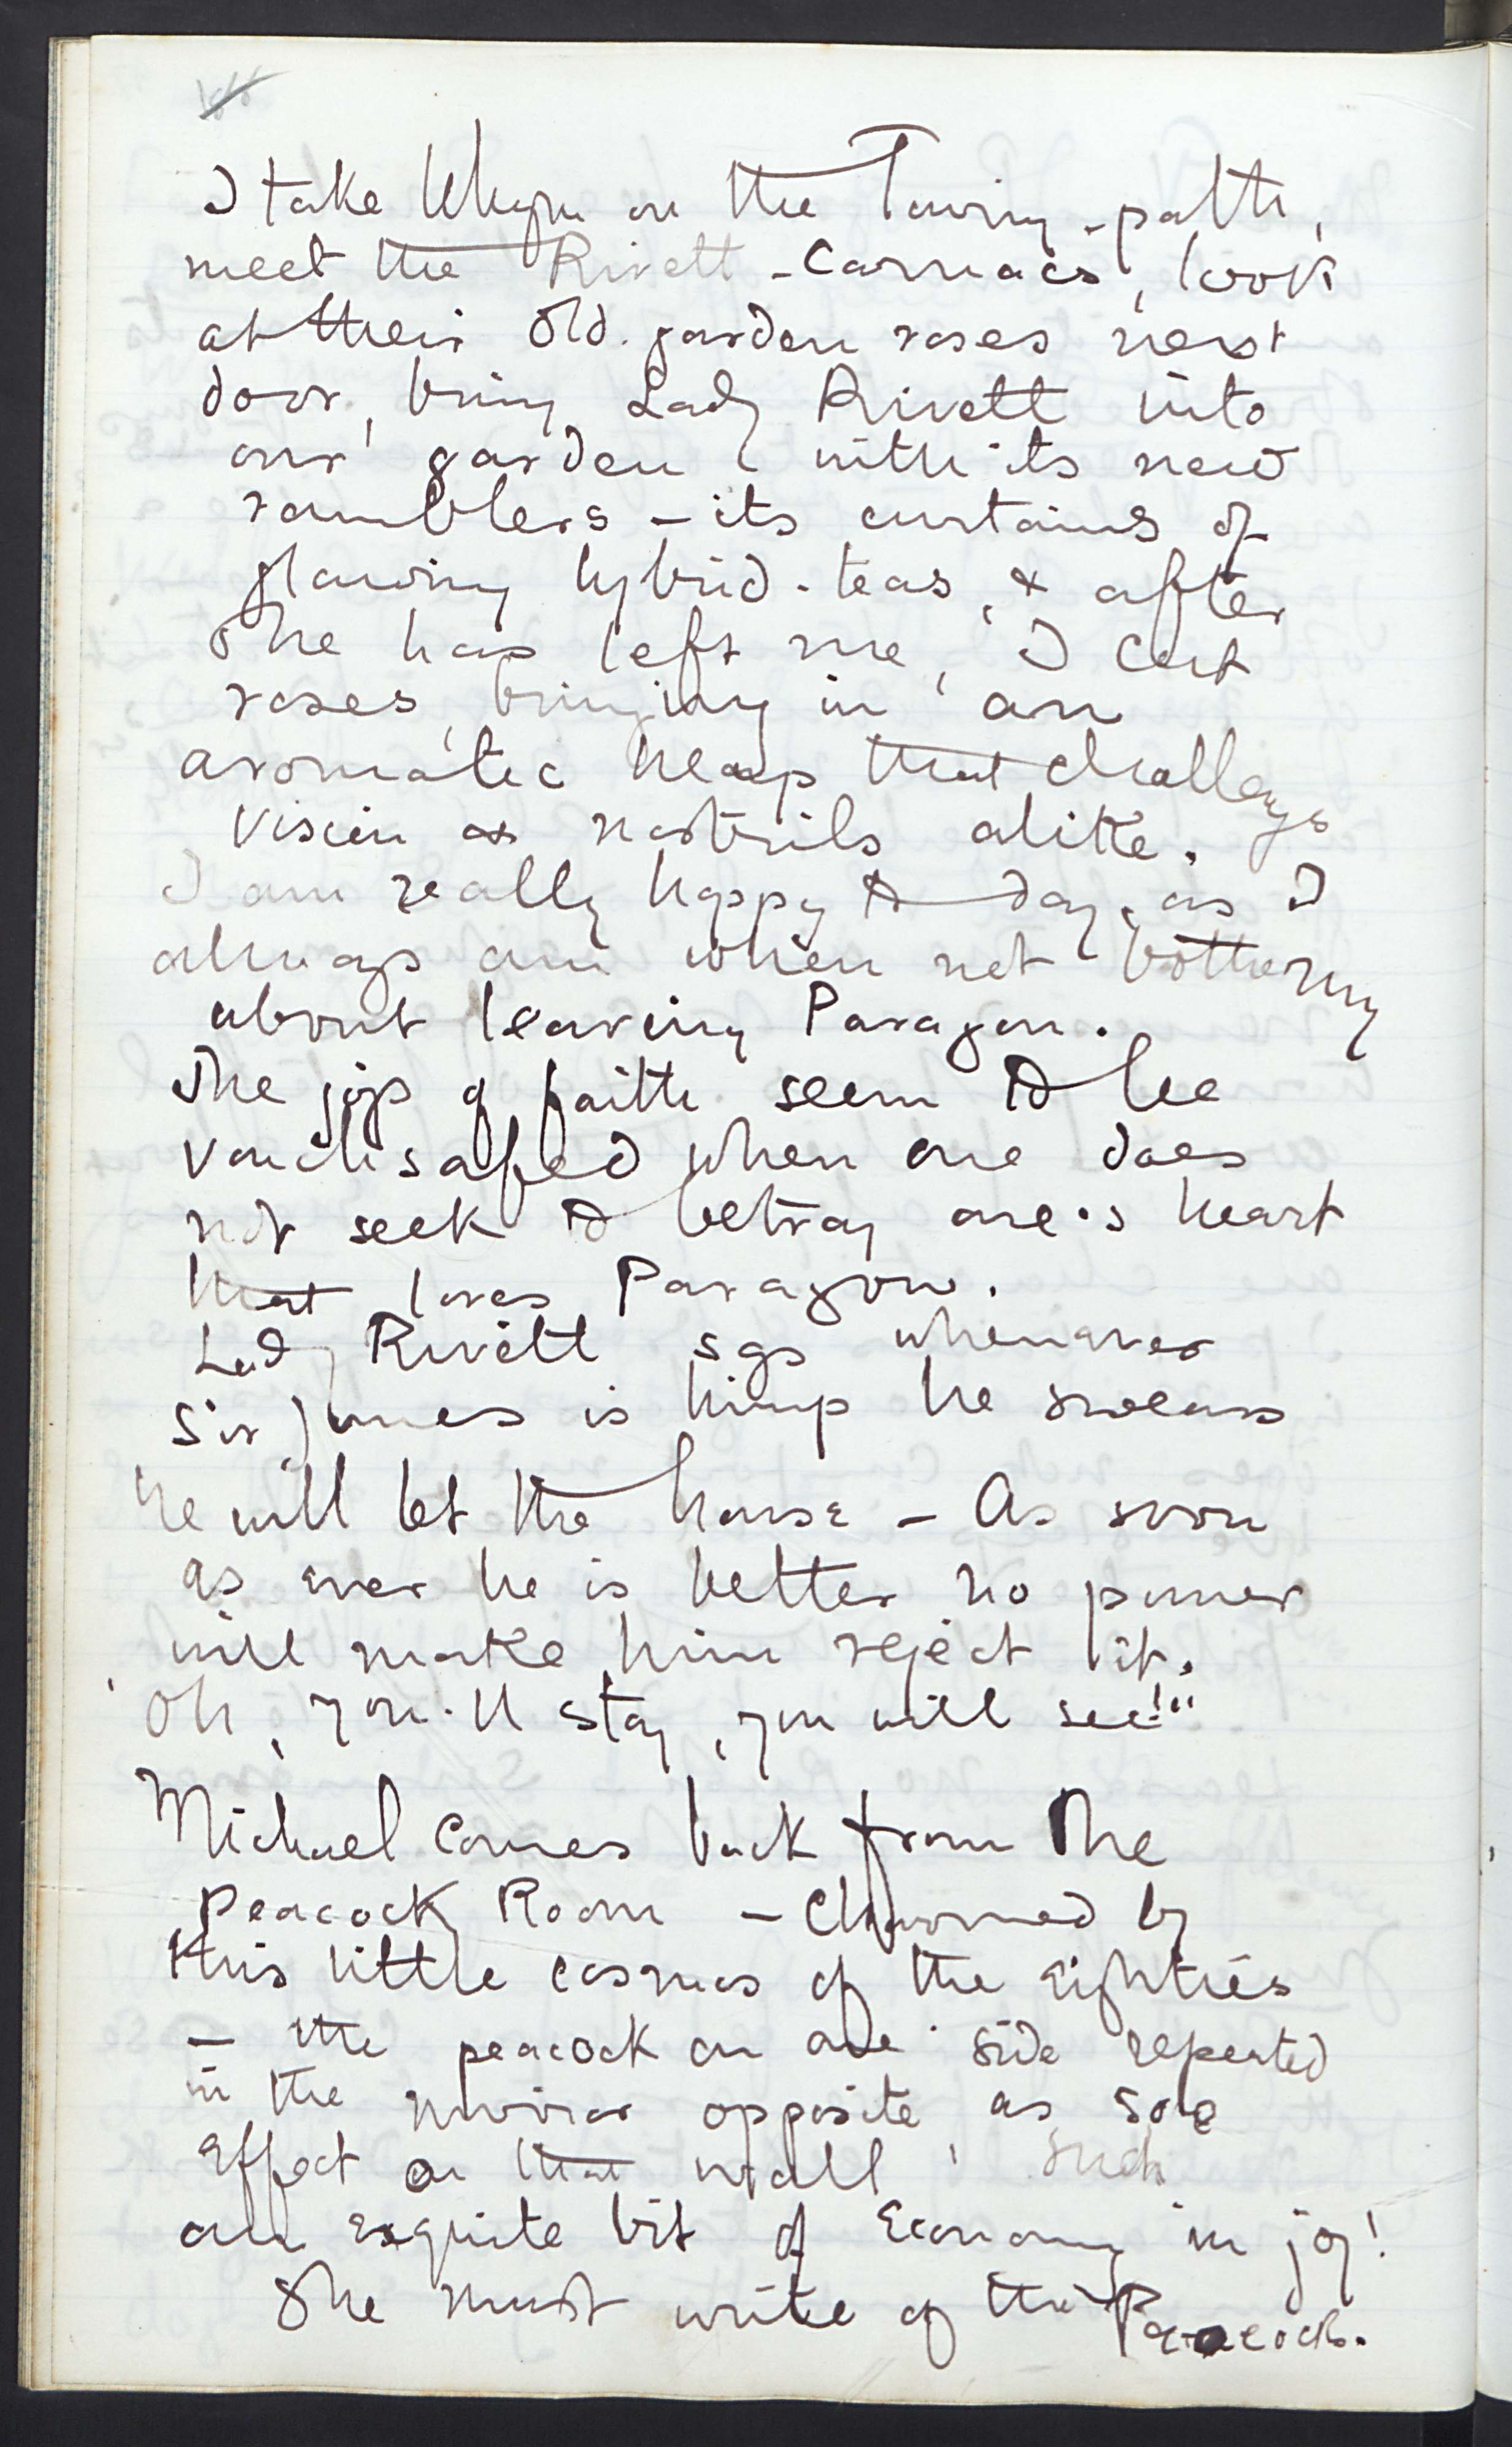 I take Whym on the Towing-path,
meet the Rivett-Carnacs, look
at their old garden roses next
door, bring Lady Rivett into
our garden with its new
ramblers – its curtains of
flowing hybrid-teas, & after
she has left me, I cut
roses, bringing in an
aromatic heap that challenges
vision & nostrils alike.
I am really happy to day, as I
always am when not bothering
about leaving Paragon.
The joys of faith seem to be
vouchsafed when one does
not seek to betray one's heart
that loves Paragon.
Lady Rivett says whenever
Sir James is he swears
he will let the house – As soon
as ever he is better no power
will make him reject it.
'Oh, you'll stay, you will see!"
Michael comes back from The
Peacock Room – Charmed by
this little cosmos of the eighties
– the peacock on one side repeated
in the mirror opposite as sole
effect on that wall! Such
an exquite bit of Economy in joy!
She must write of the Peacock.